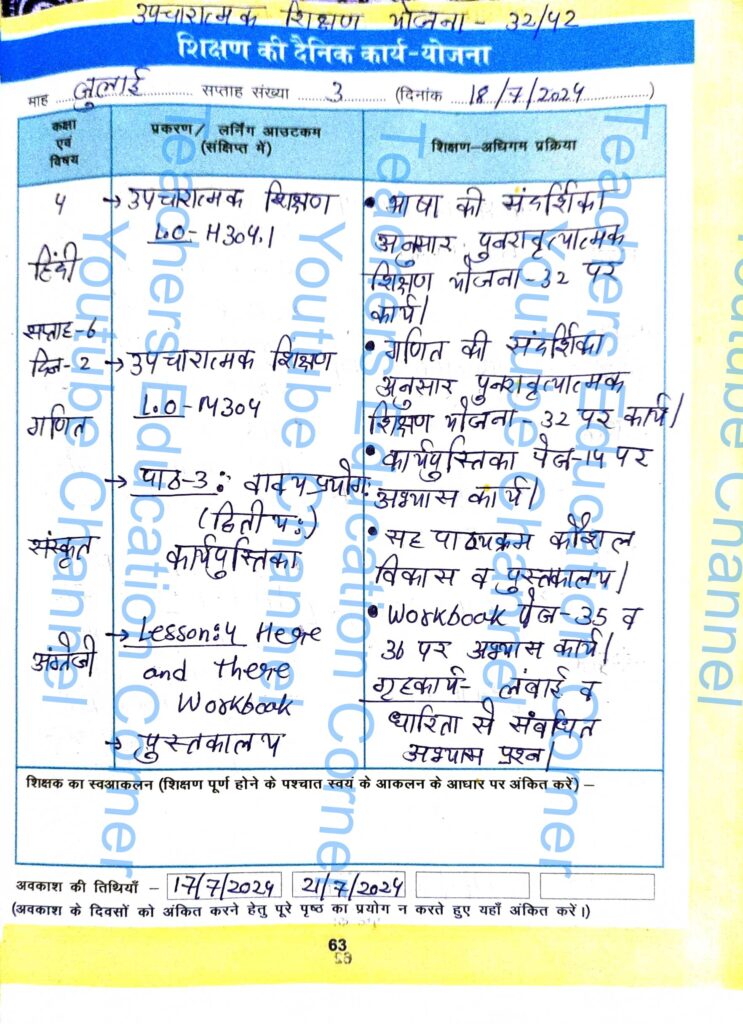 उपचारात्मक शिक्षण योजना - 32/42
शिक्षण की दैनिक कार्य-योजना
माह जुलाई सप्ताह संख्या 3 (दिनांक 18/7/2024)
कक्षा एवं विषय
प्रकरण/ लर्निंग आउटकम
(संक्षिप्त में)
शिक्षण-अधिगम प्रक्रिया
4
हिंदी
सप्ताह-6
दिन-2
गणित
संस्कृत
अंग्रेजी
→ उपचारात्मक शिक्षण
L.O-H304.1
→ उपचारात्मक शिक्षण
L.O-M304
→ पाठ-3: वाक्यप्रयोगः
(द्वितीयः)
कार्यपुस्तिका
→ Lesson:4 Here
and there
Workbook
→ पुस्तकालय
• भाषा की संदर्शिका
अनुसार पुनरावृत्यात्मक
शिक्षण योजना-32 पर
कार्य।
• गणित की संदर्शिका
अनुसार पुनरावृत्यात्मक
शिक्षण योजना-32 पर कार्य।
• कार्यपुस्तिका पेज-14 पर
अभ्यास कार्य।
• सह पाठ्यक्रम कौशल
विकास व पुस्तकालय।
• Workbook पेज-35 व
36 पर अभ्यास कार्य।
गृहकार्य- लंबाई व
धारिता से संबंधित
अभ्यास प्रश्न।
शिक्षक का स्वआकलन (शिक्षण पूर्ण होने के पश्चात स्वयं के आकलन के आधार पर अंकित करें) –
अवकाश की तिथियाँ – 17/7/2024 21/7/2024
(अवकाश के दिवसों को अंकित करने हेतु पूरे पृष्ठ का प्रयोग न करते हुए यहाँ अंकित करें।)
63
Teachers Education Corner
Youtube Channel
Teachers Education Corner
Youtube Channel
Teachers Education Corner
Youtube Channel